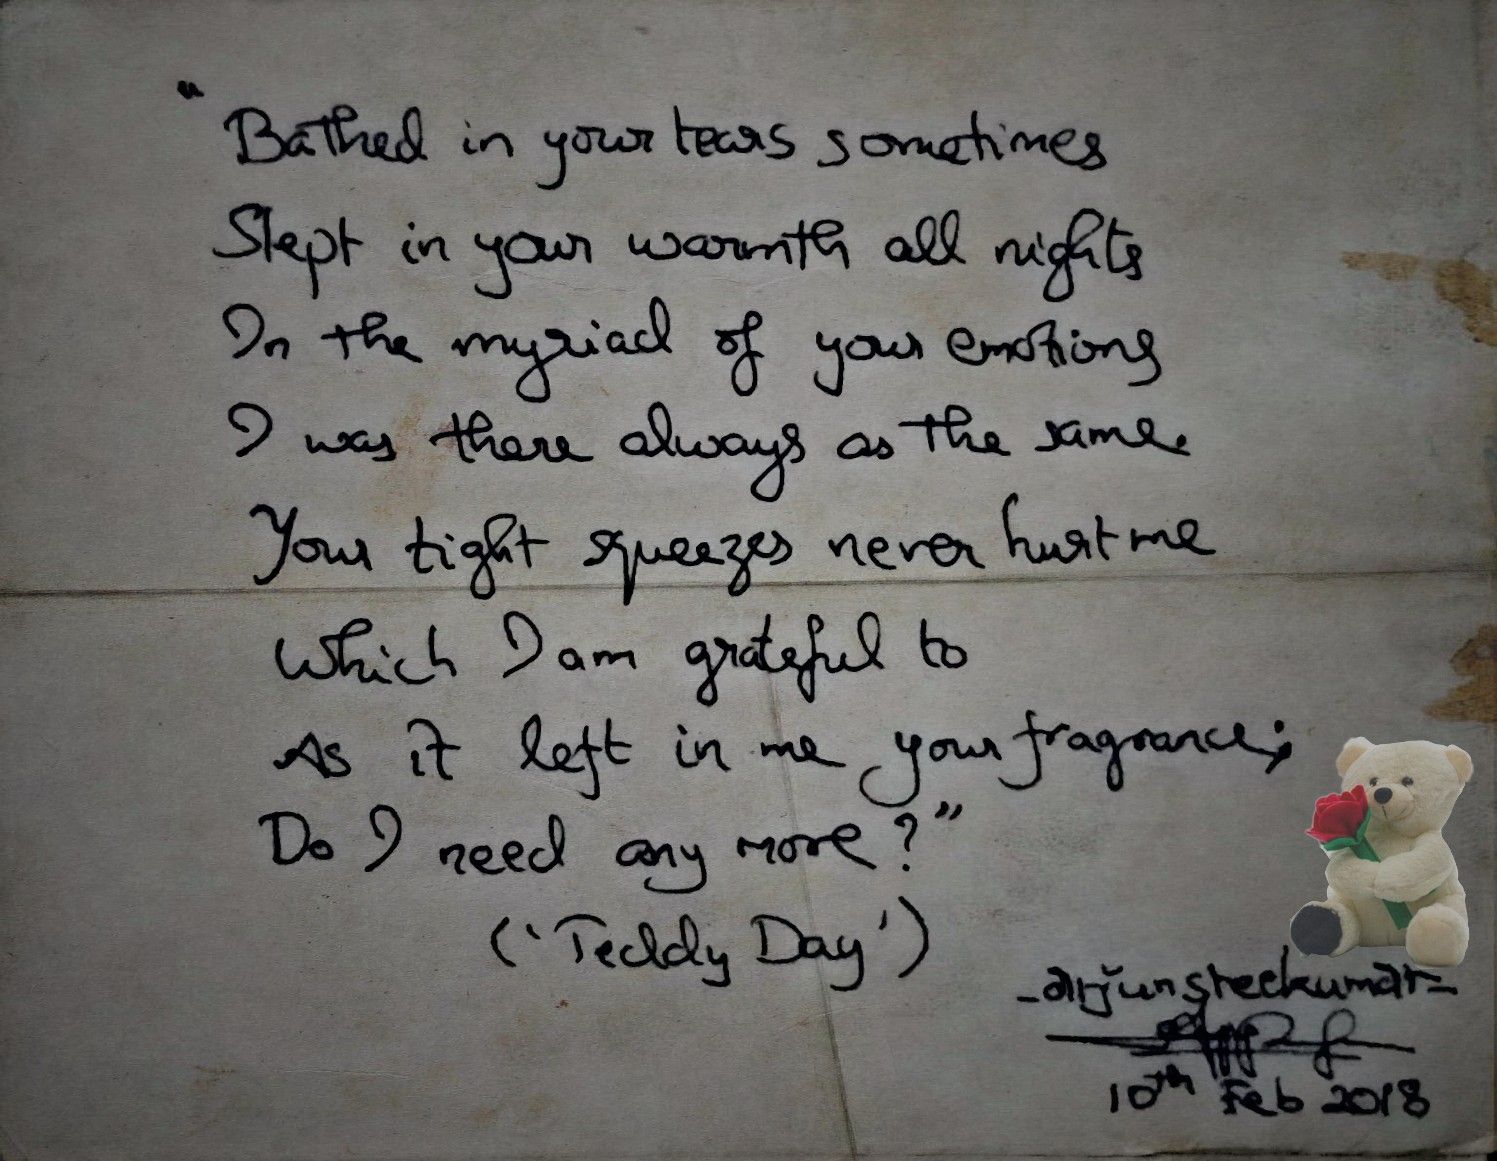 "Bathed in your tears sometimes
Slept in your warmth all nights
In the myriad of your emotions
I was there always as the same.
Your tight squeezes never hurt me
Which I am grateful to
As it left in me your fragrance;
Do I need any more?"
('Teddy Day')
-arjunsreekumar-
10th Feb 2018